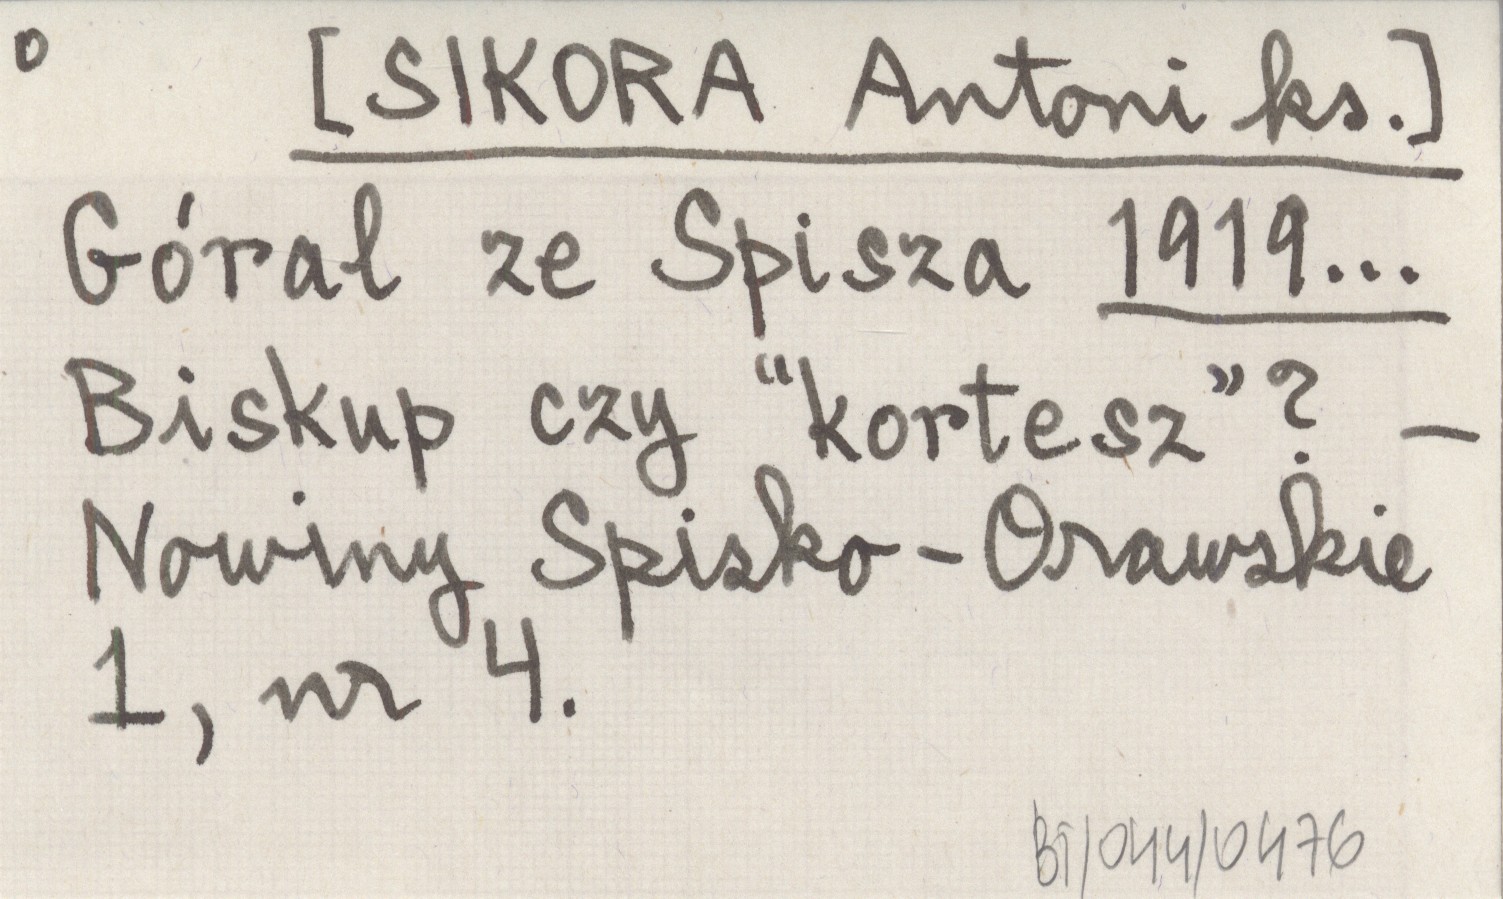 o [SIKORA Antoni ks.]
Góral ze Spisza 1919...
Biskup czy “kortesz”? –
Nowiny Spisko-Orawskie
1, nr 4.
BT/044/0476